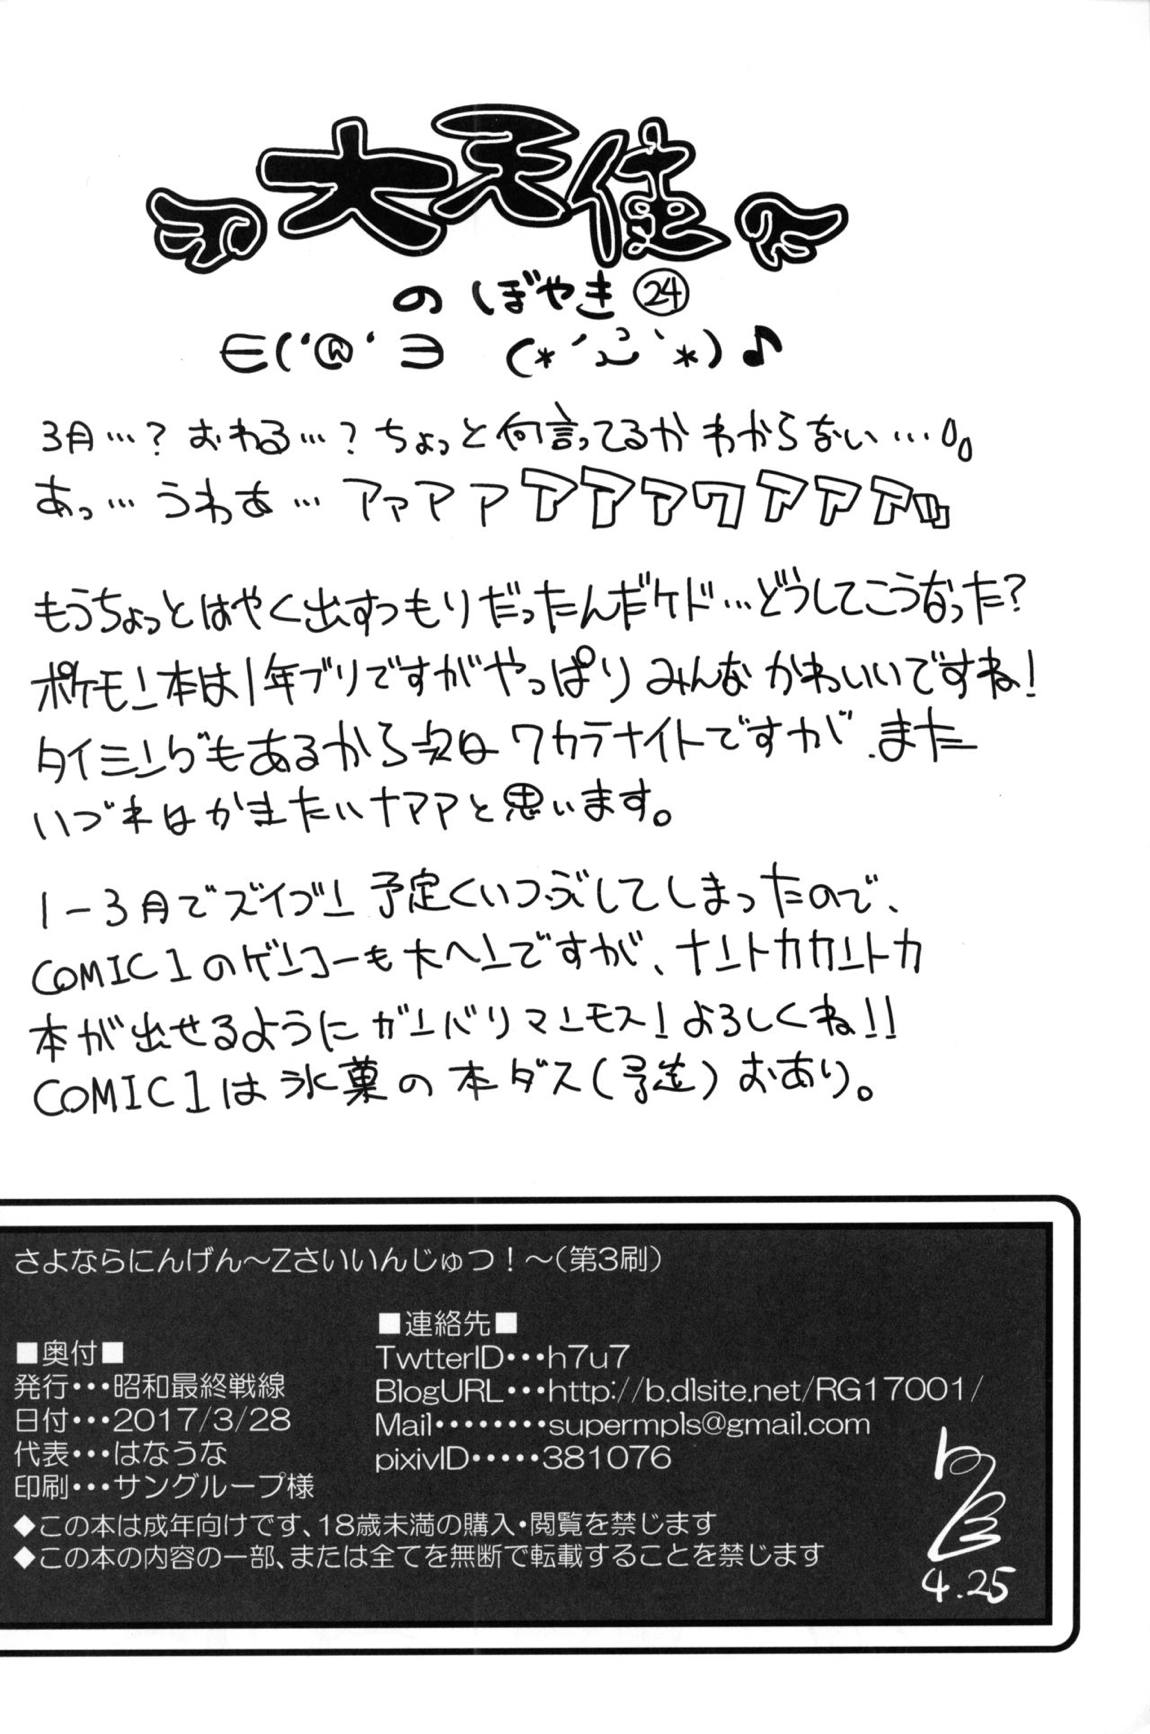 大天使
のぼやき㉔
∈('@'∋ (*´ڡ`*)♪
3月…?おわる…?ちょっと何言ってるかわからない…
あっ…うわあ…アァアァアアァワアアアッ
もうちょっとはやく出すつもりだったんだケド…どうしてこうなった?
ポケモン本は1年ブリですがやっぱりみんなかわいいですね!
タイミングもあるから次はワカラナイトですが、また
いづれはかきたいナアアと思います。
1-3月でズイブン予定くいつぶしてしまったので、
COMIC1のゲンコーも大ヘンですが、ナントカカントカ
本が出せるようにガンバリマンモス!よろしくね!!
COMIC1は氷菓の本ダス(予定)おあり。
さよならにんげん~Zさいいんじゅつ!~(第3刷)
■奥付■
発行・・・昭和最終戦線
日付・・・2017/3/28
代表・・・はなうな
印刷・・・サングループ様
■連絡先■
TwtterID・・・h7u7
BlogURL・・・http://b.dlsite.net/RG17001/
Mail・・・・・・・・supermpls@gmail.com
pixivID・・・・・381076
◆この本は成年向けです、18歳未満の購入・閲覧を禁じます
◆この本の内容の一部、または全てを無断で転載することを禁じます
4.25